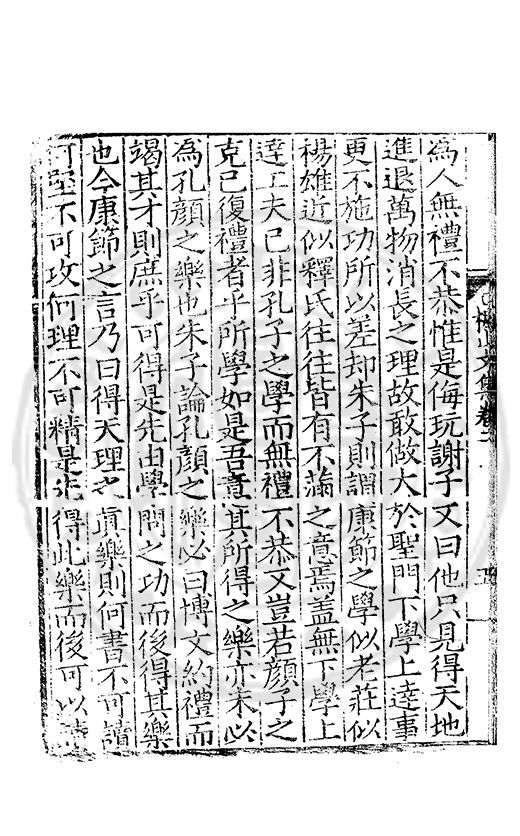 為人無禮不恭惟是侮玩謝子又曰他只見得天地
進退萬物消長之理故敢做大於聖門下學上達事
更不施功所以差却朱子則謂康節之學似老莊似
楊雄近似釋氏往往皆有不滿之意焉盖無下學上
達工夫已非孔子之學而無禮不恭又豈若顔子之
克己復禮者乎所學如是吾意其所得之樂亦未必
為孔顔之樂也朱子論孔顔之樂必曰博文約禮而
竭其才則庶乎可得是先由學問之功而後得其樂
也今康節之言乃曰得天理之眞樂則何書不可讀
何堅不可攻何理不可精是先得此樂而後可以讀
文集卷